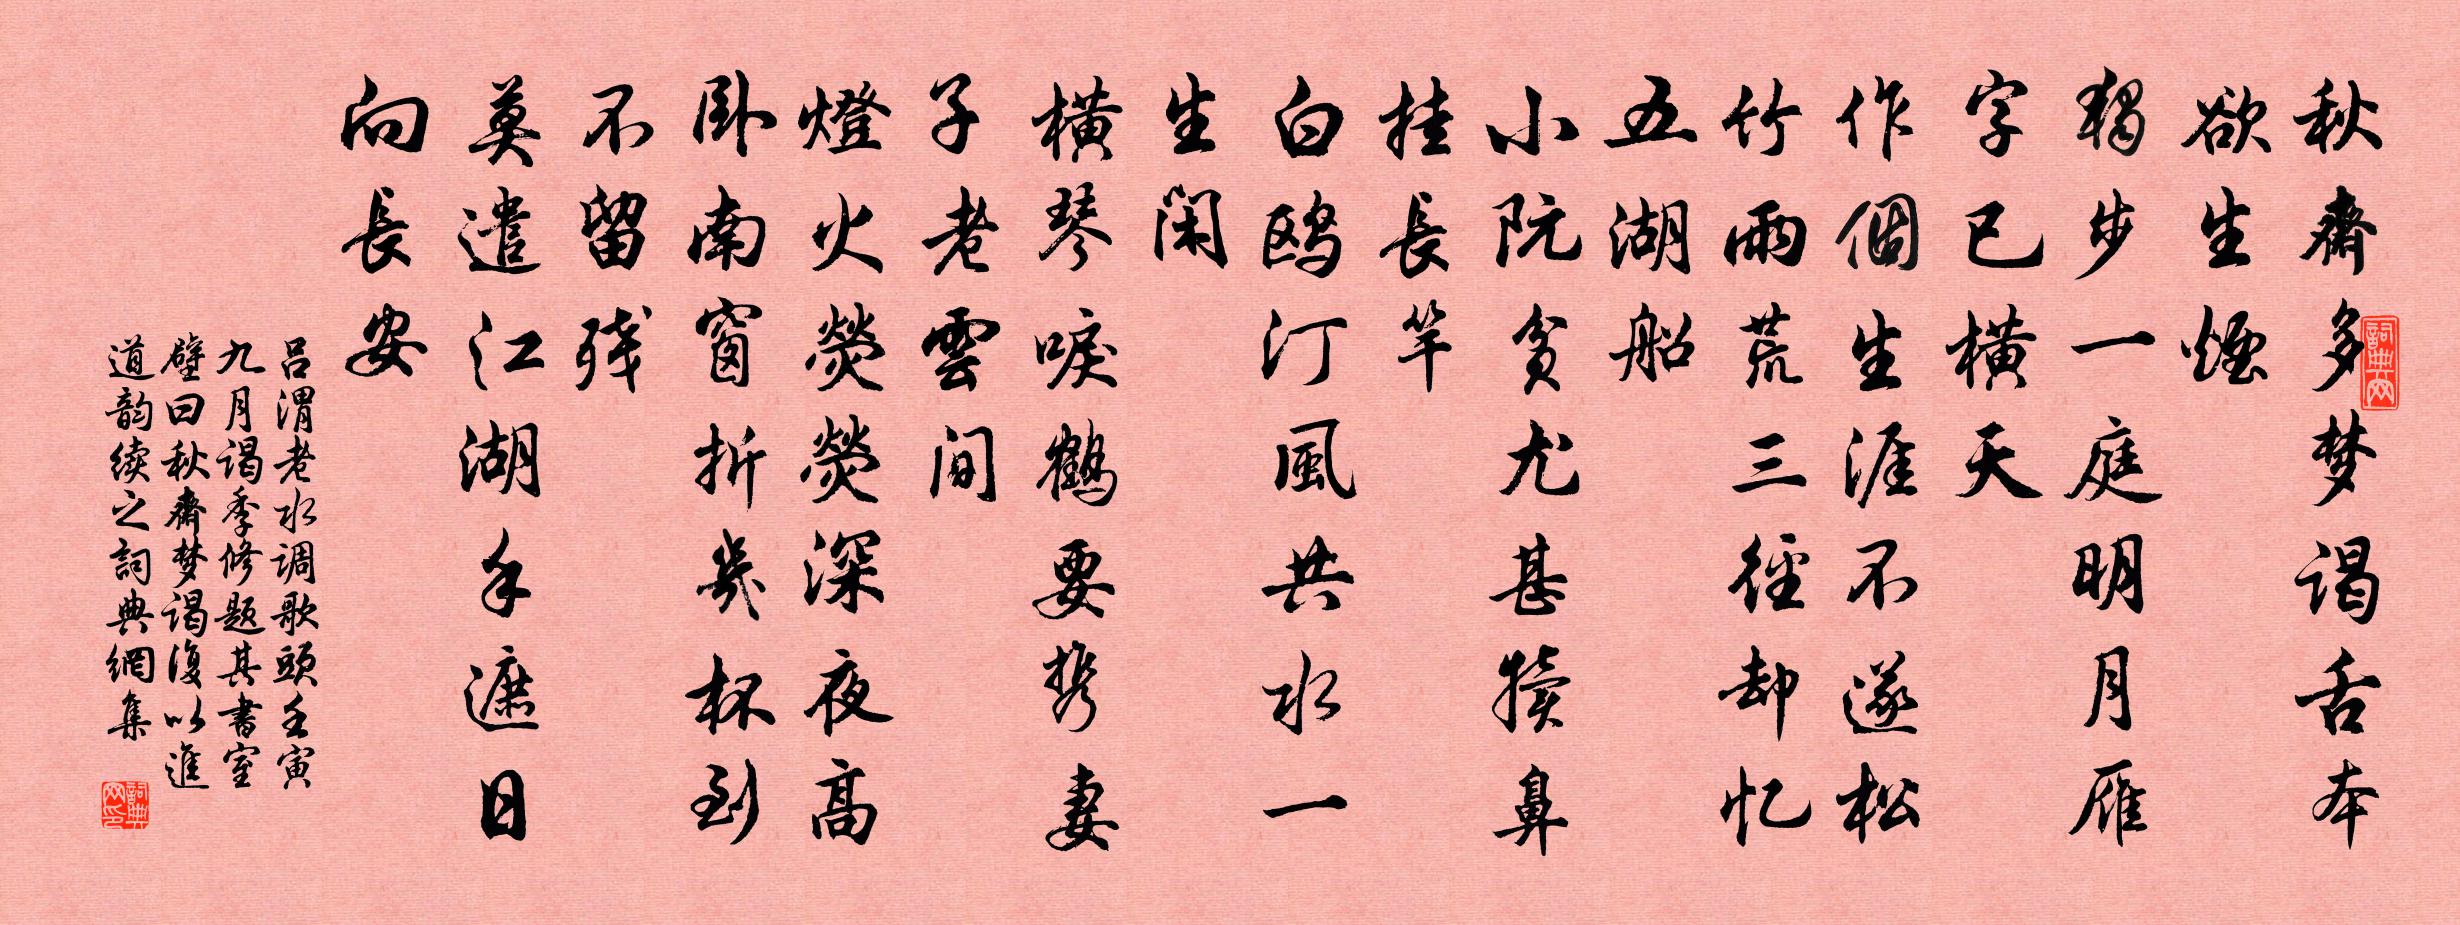 秋齋多梦谒舌本
欲生煙
獨步一庭明月雁
字已橫天
作個生涯不遂松
竹雨荒三徑却忆
五湖船
小阮贫尤甚犊鼻
挂長竿
白鸥汀風共水一
生闲
橫琴唳鶴要携妻
子老雲间
燈火熒熒深夜高
卧南窗折幾杯到
不留残
莫遣江湖手遮日
向長安
吕渭老水调歌頭壬寅
九月谒季修题其書室
壁曰秋齋梦谒復以進
道韵续之詞典網集
詞典网
詞典网印